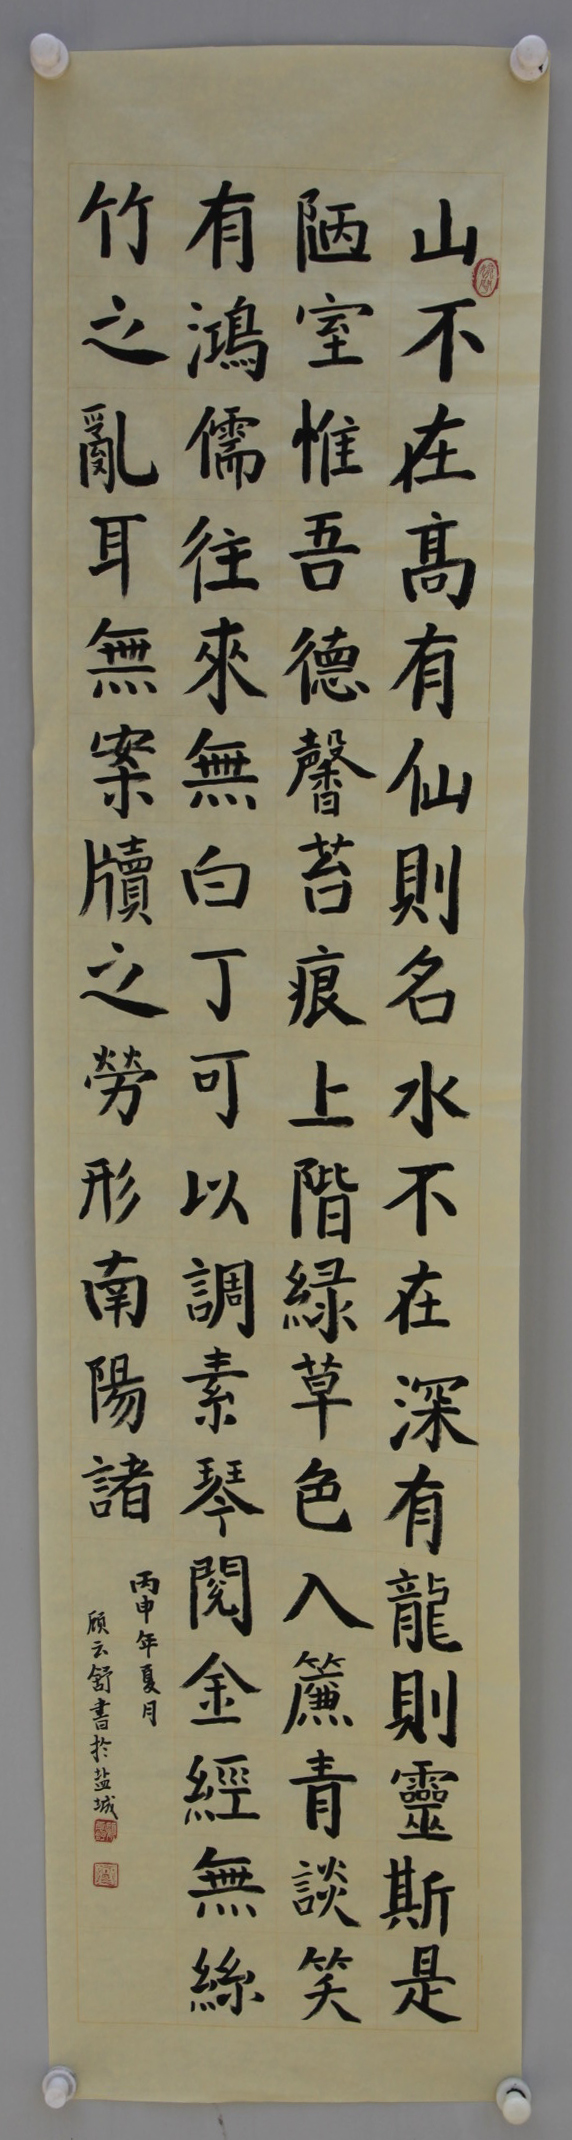 山不在高有仙則名水不在深有龍則靈斯是
陋室惟吾德馨苔痕上階緑草色入簾青談笑
有鴻儒往來無白丁可以調素琴閱金經無絲
竹之亂耳無案牘之勞形南陽諸
丙申年夏月
顾云舒書於盐城